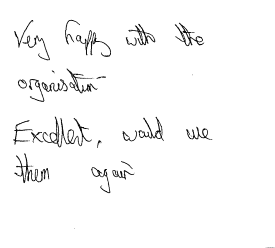 Very happy with the
organisation
Excellent, would use
them again